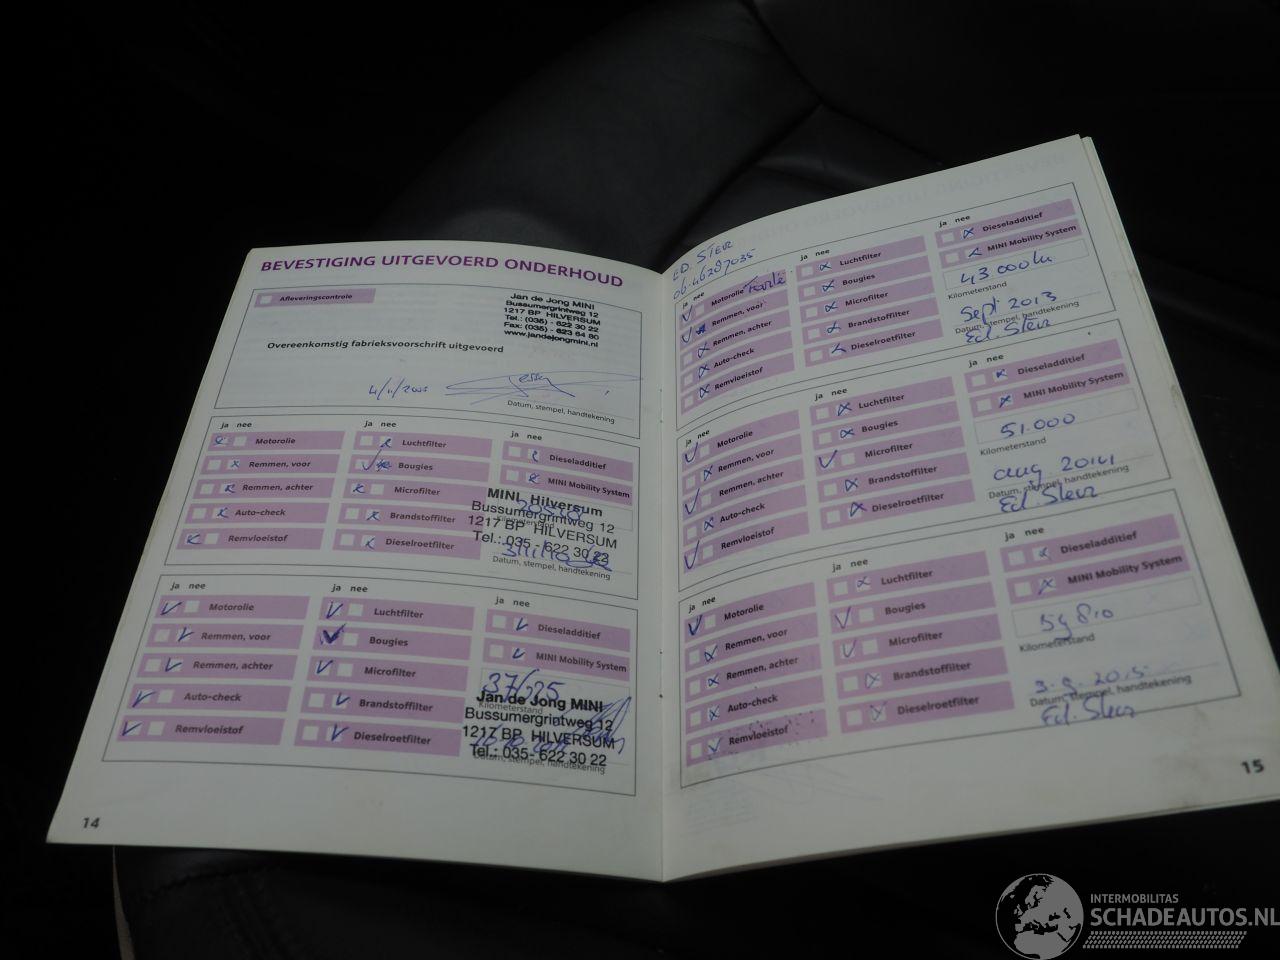 BEVESTIGING UITGEVOERD ONDERHOUD
Afleveringscontrole
Jan de Jong MINI
Bussumergrintweg 12
1217 BP HILVERSUM
Tel.: (035) - 622 30 22
Fax: (035) - 623 64 80
www.jandejongmini.nl
Overeenkomstig fabrieksvoorschrift uitgevoerd
Datum, stempel, handtekening
ja nee
Motorolie
Remmen, voor
Remmen, achter
Auto-check
Remvloeistof
ja nee
Luchtfilter
Bougies
Microfilter
Brandstoffilter
Dieselroetfilter
ja nee
Dieseladditief
MINI Mobility System
MINI Hilversum
Bussumergrintweg 12
Kilometerstand
1217 BP HILVERSUM
Tel.: 035 - 622 30 22
Datum, stempel, handtekening
ja nee
Motorolie
Remmen, voor
Remmen, achter
Auto-check
Remvloeistof
ja nee
Luchtfilter
Bougies
Microfilter
Brandstoffilter
Dieselroetfilter
ja nee
Dieseladditief
MINI Mobility System
Kilometerstand
Jan de Jong MINI
Bussumergrintweg 12
1217 BP HILVERSUM
Tel.: 035- 622 30 22
Datum, stempel, handtekening
14
ED. STER
06-46287035
ja nee
Motorolie
Remmen, voor
Remmen, achter
Auto-check
Remvloeistof
ja nee
Luchtfilter
Bougies
Microfilter
Brandstoffilter
Dieselroetfilter
ja nee
Dieseladditief
MINI Mobility System
43000km
Kilometerstand
Sept 2013
Datum, stempel, handtekening
Ed. Ster
ja nee
Motorolie
Remmen, voor
Remmen, achter
Auto-check
Remvloeistof
ja nee
Luchtfilter
Bougies
Microfilter
Brandstoffilter
Dieselroetfilter
ja nee
Dieseladditief
MINI Mobility System
51.000
Kilometerstand
aug. 2014
Datum, stempel, handtekening
Ed. Ster
ja nee
Motorolie
Remmen, voor
Remmen, achter
Auto-check
Remvloeistof
ja nee
Luchtfilter
Bougies
Microfilter
Brandstoffilter
Dieselroetfilter
ja nee
Dieseladditief
MINI Mobility System
59810
Kilometerstand
3.9.2015
Datum, stempel, handtekening
Ed. Ster
15
INTERMOBILITAS
SCHADEAUTOS.NL